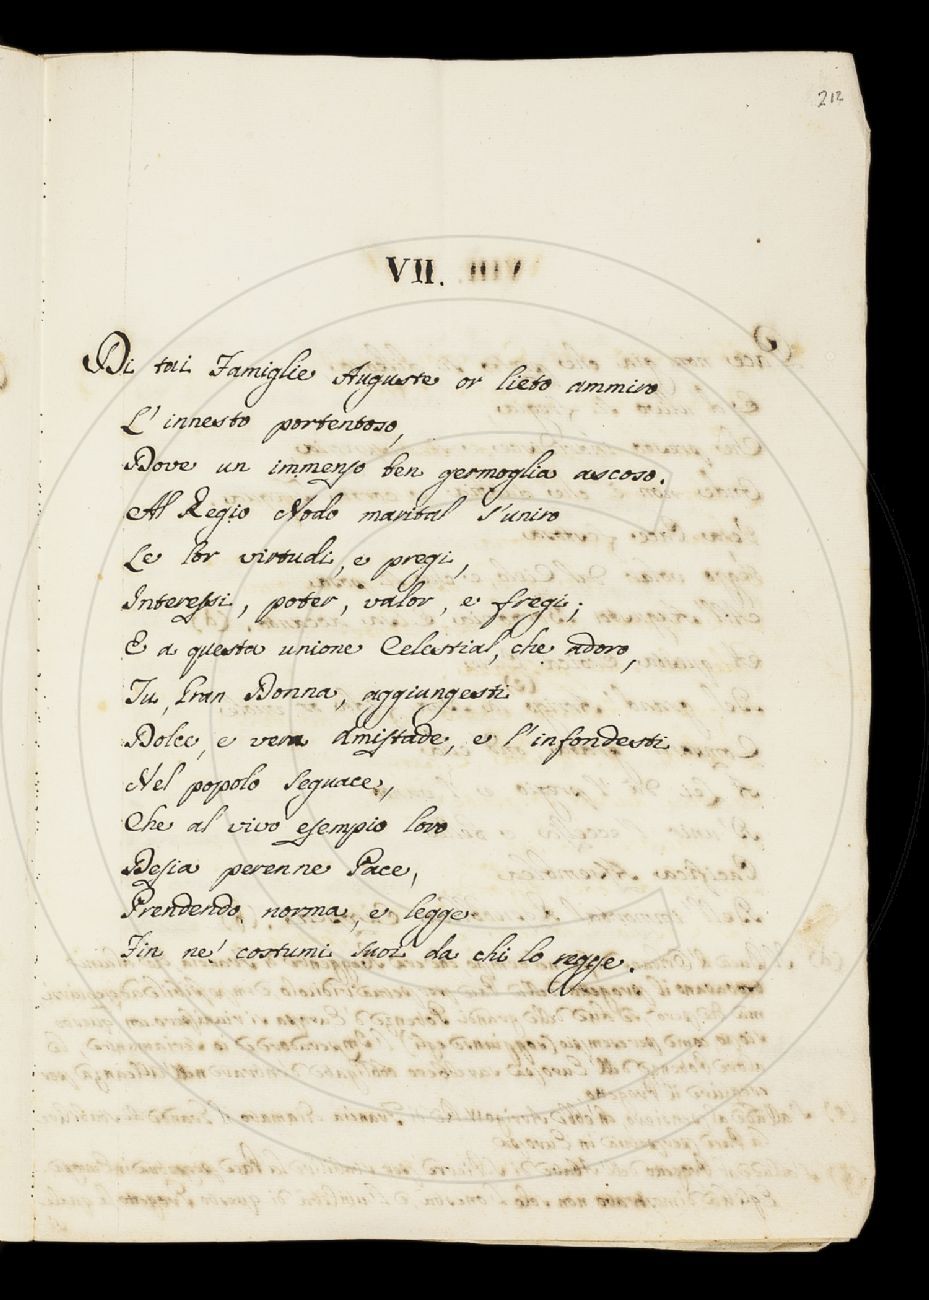 212
VII.
Di tai Famiglie Auguste or lieto ammiro
L' innesto portentoso,
Dove un immenso ben germoglia ascoso.
Al Regio Nodo marital s'uniro
Le lor virtudi, e pregi,
Interessi, poter, valor, e fregi;
E a questa unione Celestial, che adoro,
Tu, Gran Donna, aggiungesti
Dolce, e vera Amistade, e l'infondesti
Nel popolo seguace,
Che al vivo esempio loro
Desia perenne Pace,
Prendendo norma, e legge
Fin ne' costumi suoi da chi lo regge.